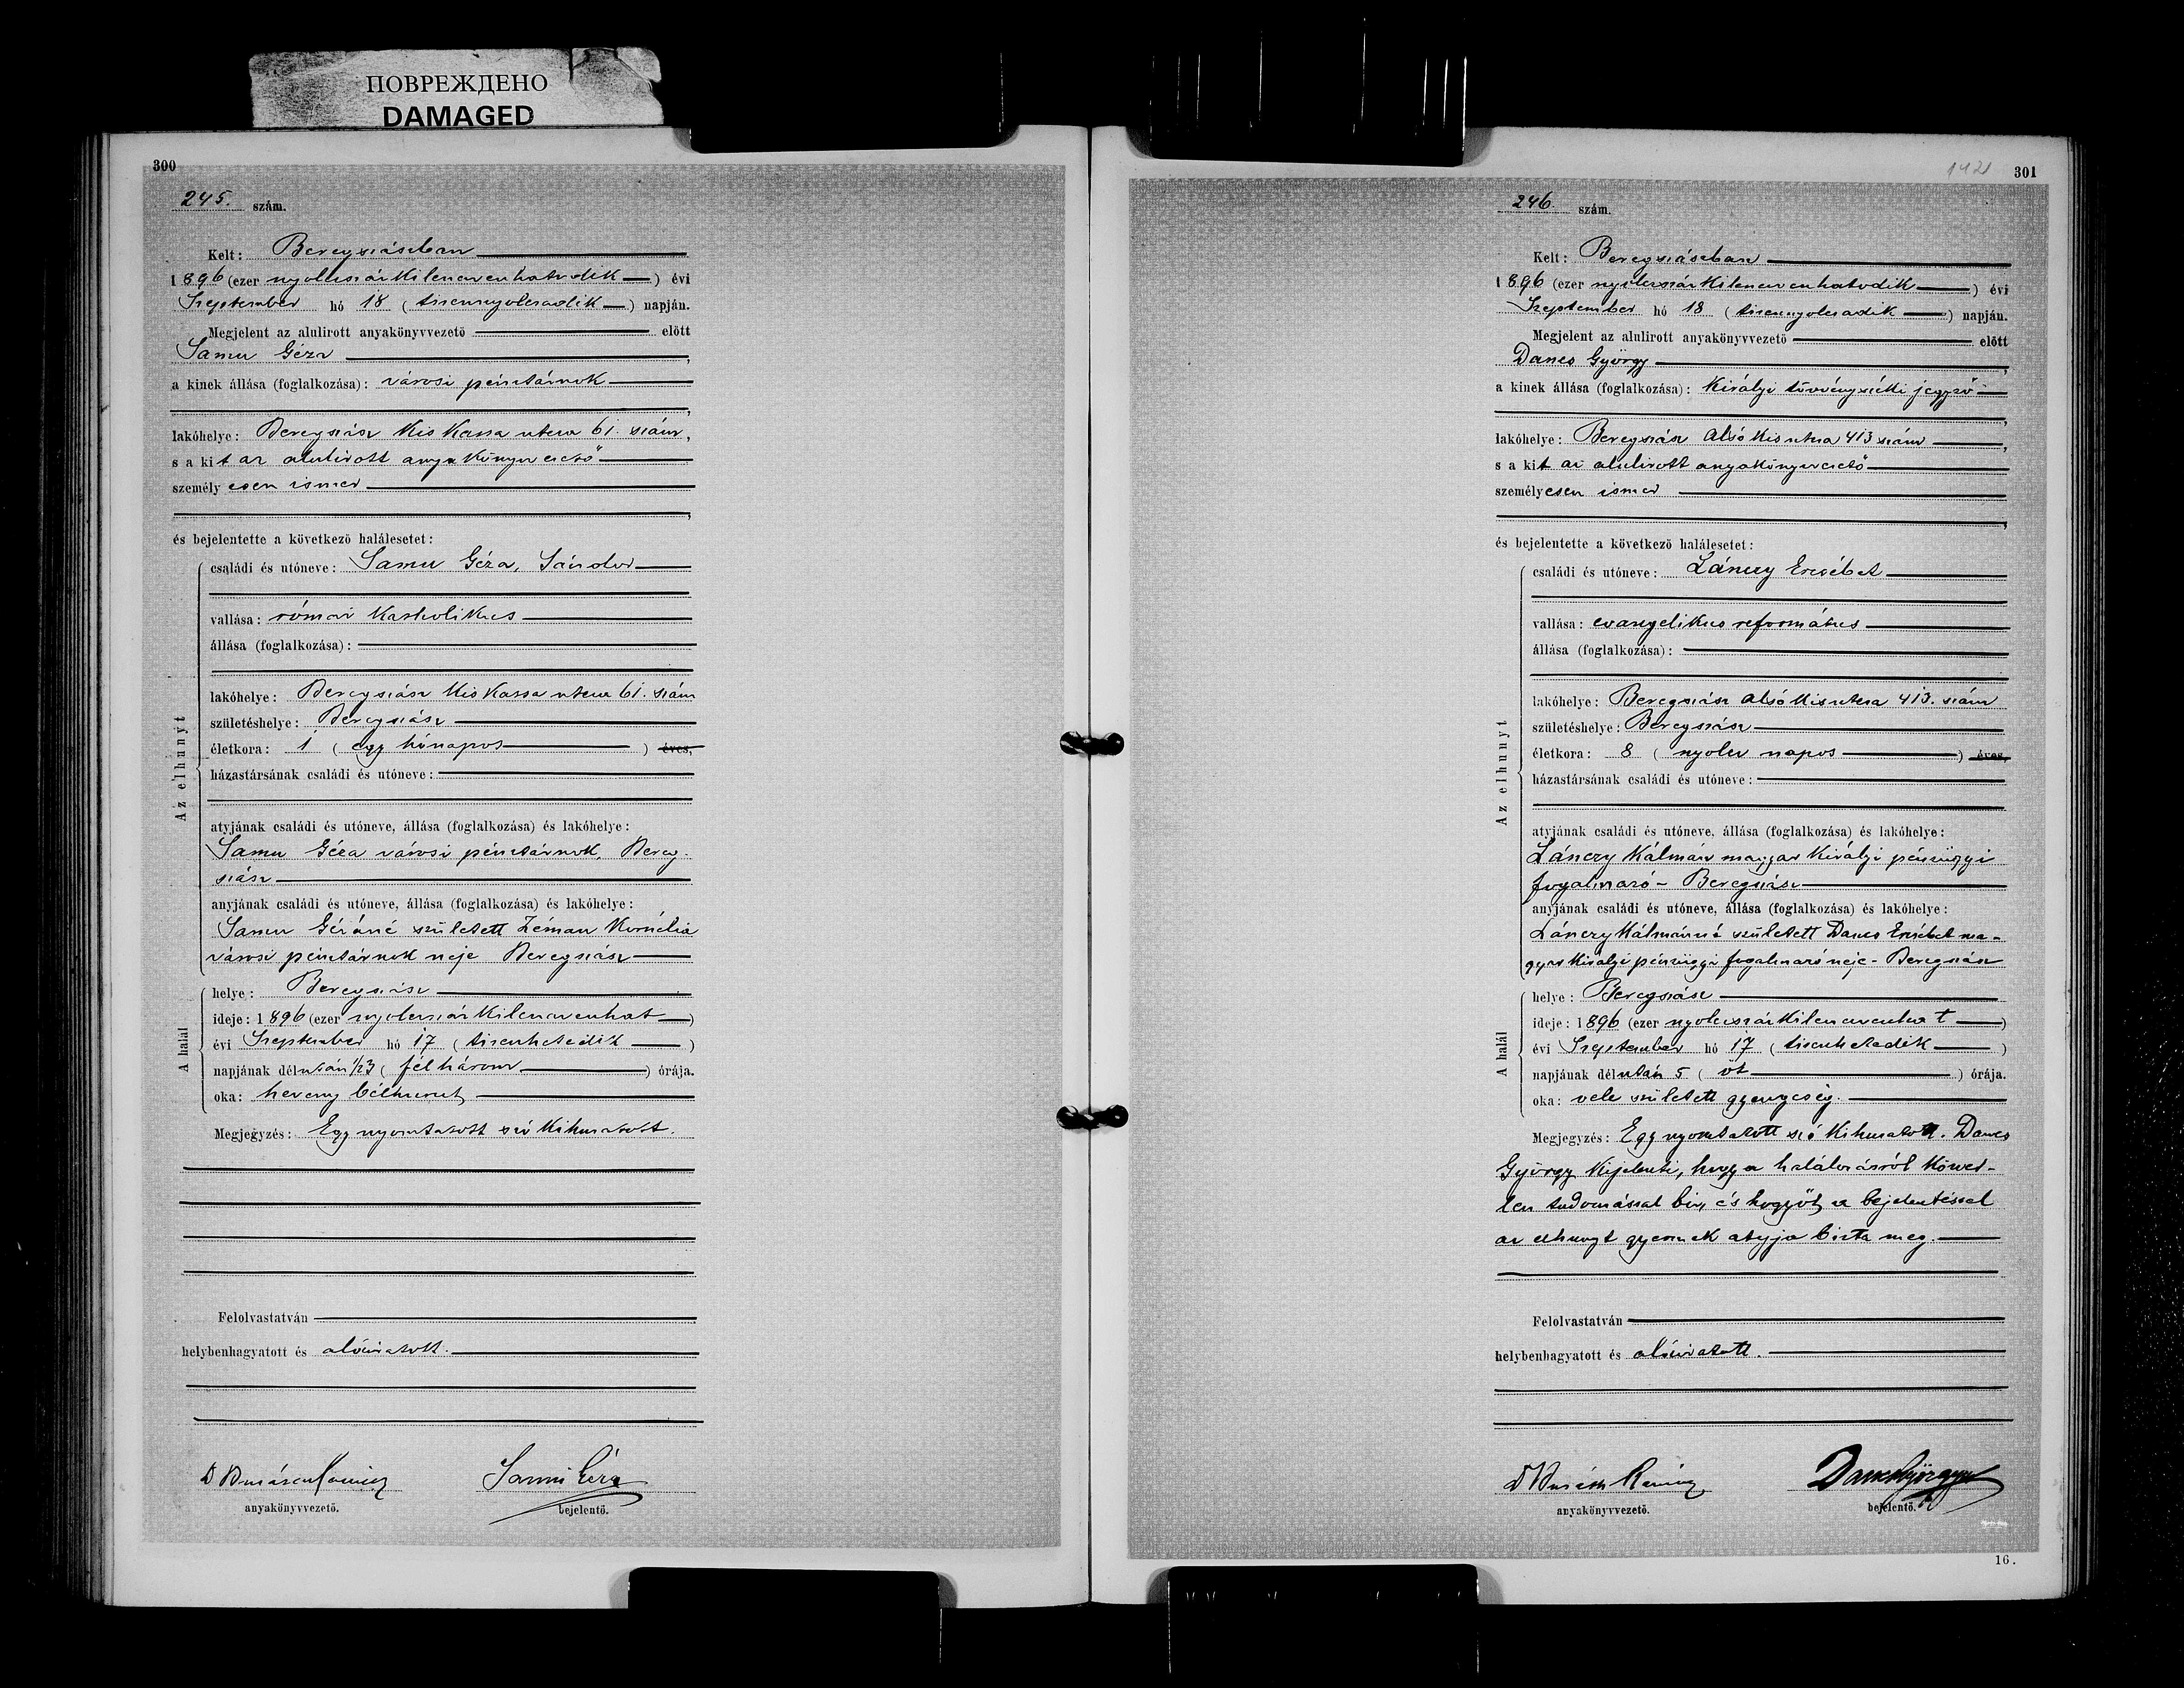 ПОВРЕЖДЕНО
DAMAGED
300
245. szám.
Kelt: Beregszászban
1896 (ezer nyolcszázkilencvenhatodik) évi
Szeptember hó 18 (tizennyolcadik) napján.
Megjelent az alulirott anyakönyvvezető előtt
Samu Géza,
a kinek állása (foglalkozása): városi pénztárnok
lakóhelye: Beregszász Kis Kassa utca 61. szám,
s a kit az alulirott anyakönyvvezető
személyesen ismer
és bejelentette a következő halálesetet:
Az elhunyt
családi és utóneve: Samu Géza, Sándor
vallása: római katholikus
állása (foglalkozása):
lakóhelye: Beregszász Kis Kassa utca 61. szám
születéshelye: Beregszász
életkora: 1 (egy hónapos) éves,
házastársának családi és utóneve:
atyjának családi és utóneve, állása (foglalkozása) és lakóhelye:
Samu Géza városi pénztárnok, Bereg-
szász
anyjának családi és utóneve, állása (foglalkozása) és lakóhelye:
Samu Gézáné született Zéman Kornélia
városi pénztárnok neje Beregszász
A halál
helye: Beregszász
ideje: 1896 (ezer nyolcszázkilencvenhat)
évi Szeptember hó 17 (tizenhetedik)
napjának délután 1/23 (fél három) órája.
oka: heveny bélhurut
Megjegyzés: Egy nyomtatott szó kihuzatott.
Felolvastatván
helybenhagyatott és aláiratott.
Samu Géza
anyakönyvvezető.
bejelentő.
1421
301
246. szám.
Kelt: Beregszászban
1896 (ezer nyolcszázkilencvenhatodik) évi
Szeptember hó 18 (tizennyolcadik) napján.
Megjelent az alulirott anyakönyvvezető előtt
Dancs György,
a kinek állása (foglalkozása): Királyi törvényszéki jegyző
lakóhelye: Beregszász Alsó Kis utca 413 szám,
s a kit az alulirott anyakönyvvezető
személyesen ismer
és bejelentette a következő halálesetet:
Az elhunyt
családi és utóneve: Lánczy Erzsébet
vallása: evangelikus református
állása (foglalkozása):
lakóhelye: Beregszász Alsó Kis utca 413. szám
születéshelye: Beregszász
életkora: 8 (nyolc napos) éves,
házastársának családi és utóneve:
atyjának családi és utóneve, állása (foglalkozása) és lakóhelye:
Lánczy Kálmán magyar Királyi pénzügyi
fogalmazó - Beregszász
anyjának családi és utóneve, állása (foglalkozása) és lakóhelye:
Lánczy Kálmánné született Dancs Erzsébet ma-
gyar Királyi pénzügyi fogalmazó neje - Beregszász
A halál
helye: Beregszász
ideje: 1896 (ezer nyolcszázkilencvenhat)
évi Szeptember hó 17 (tizenhetedik)
napjának délután 5 (öt) órája.
oka: vele született gyengeség.
Megjegyzés: Egy nyomtatott szó kihuzatott. Dancs
György kijelenti, hogy a halálozásról közvet-
len tudomással bir, és hogy őt a bejelentéssel
az elhunyt gyermek atyja bizta meg.
Felolvastatván
helybenhagyatott és aláiratott.
Dancs György
anyakönyvvezető.
bejelentő.
16.